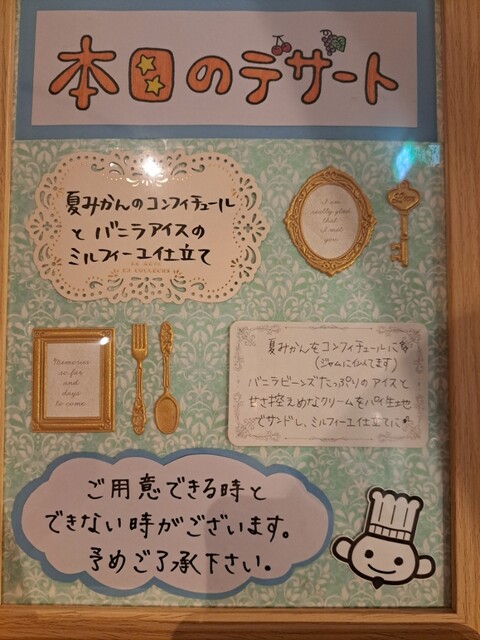 本日のデザート
夏みかんのコンフィチュール
と バニラアイスの
ミルフィーユ仕立て
I am
really glad
that
I met
you.
Memories
so far
and
days
to come
夏みかんをコンフィチュールに
(ジャムに似てます)
バニラビーンズたっぷりのアイスと
甘さ控えめなクリームをパイ生地
でサンドし、ミルフィーユ仕立てに
ご用意できる時と
できない時がございます。
予めご了承下さい。